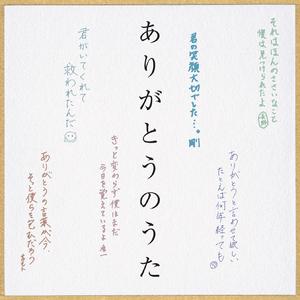 それはほんのささいなこと
僕は見つけられたよ
君の笑顔大切でした…。剛
ありがとうのうた
君がいてくれて
救われたんだ
ありがとうと言わせて欲しい
たとえば何年経っても
きっと変わらず僕はまだ
今日を覚えているよ
ありがとうの言葉が今、
そっと僕らを包むだろう